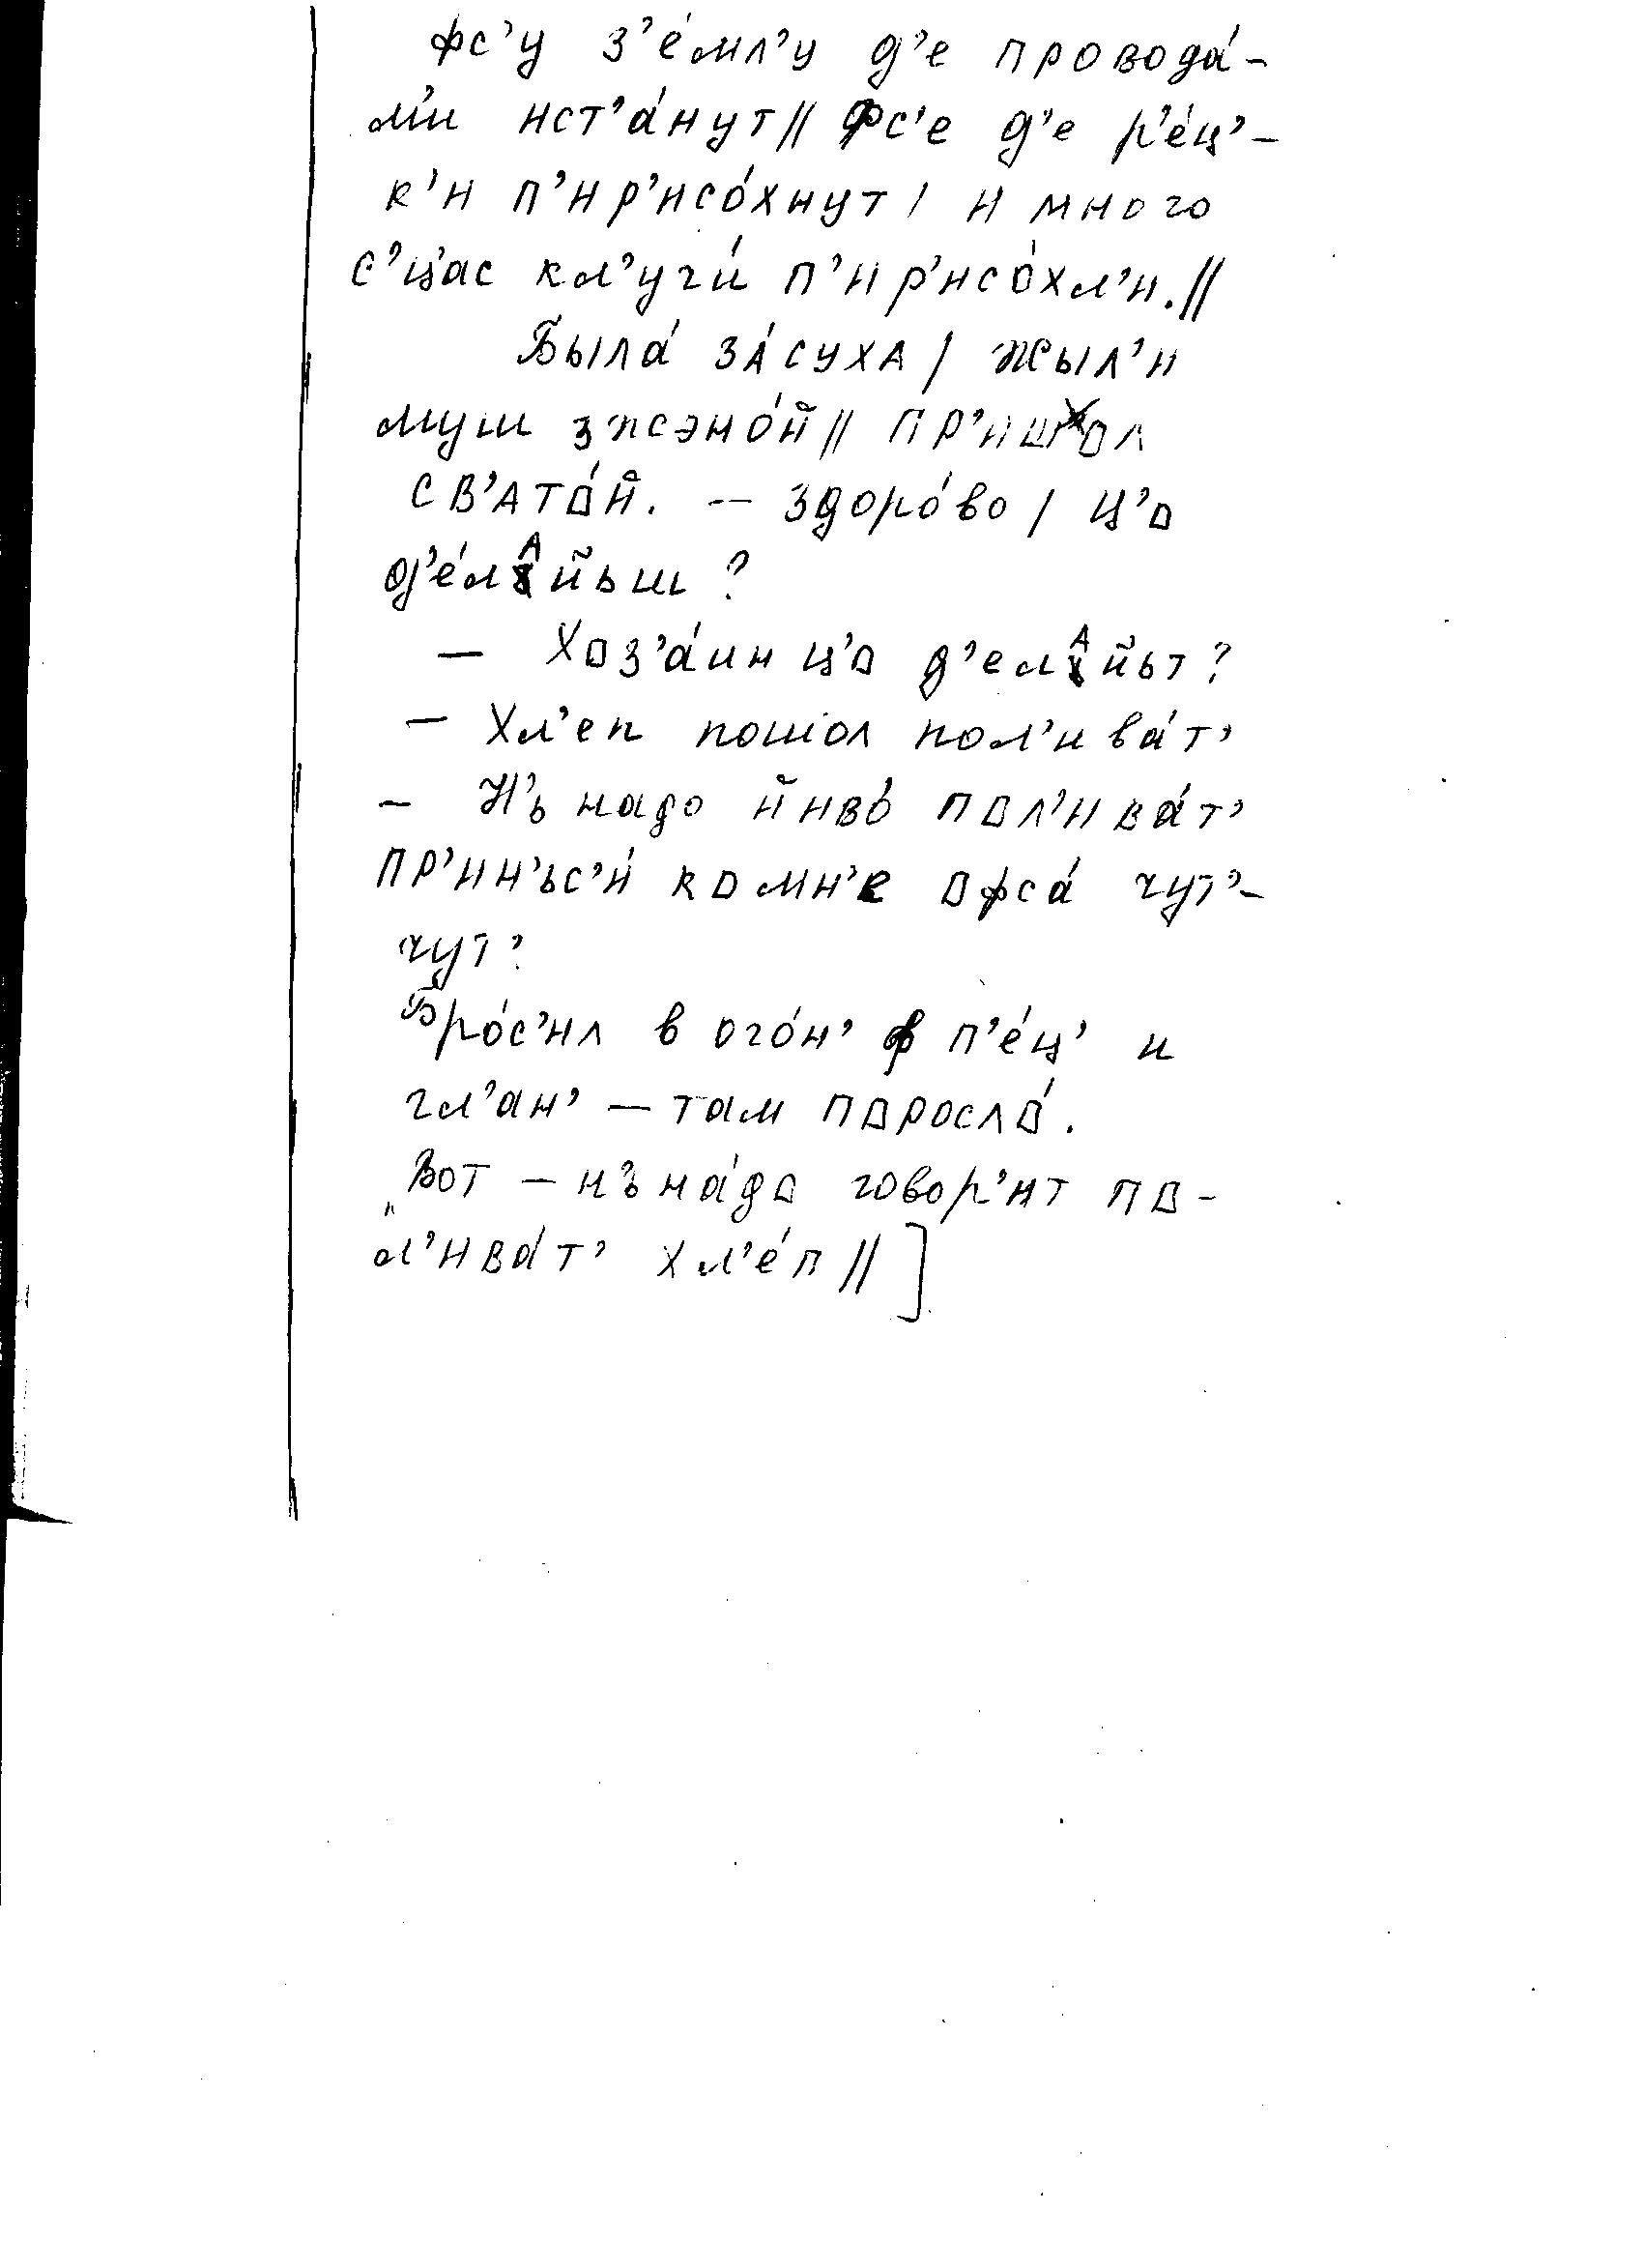 фс’у з’е́мл’у д’е провода́-
м’и ист’а́нут// Фс’е д’е р’е́ц’-
к’и п’ир’исо́хнут/ и много
с’ц’ас кл’уги́ п’ир’исо́хл’и.//
Была́ за́суха/ жыл’и
муш зжэно́й// Пр’ишол
св’ато́й. — здоро́во/ ц’о
д’е́лайьш?
— Хоз’а́ин ц’о д’елайьт?
— Хл’еп пошол пол’ива́т’
— Н’ь надо йиво́ пол’ива́т’
пр’ин’ьс’и́ ко мн’е офса́ чут’-
чут’
Бро́с’ил в ого́н’ ф п’е́ц’ и
гл’ан’ — там поросло́.
„Вот — н’ь на́до говор’ит по-
л’ива́т’ хл’е́п//]